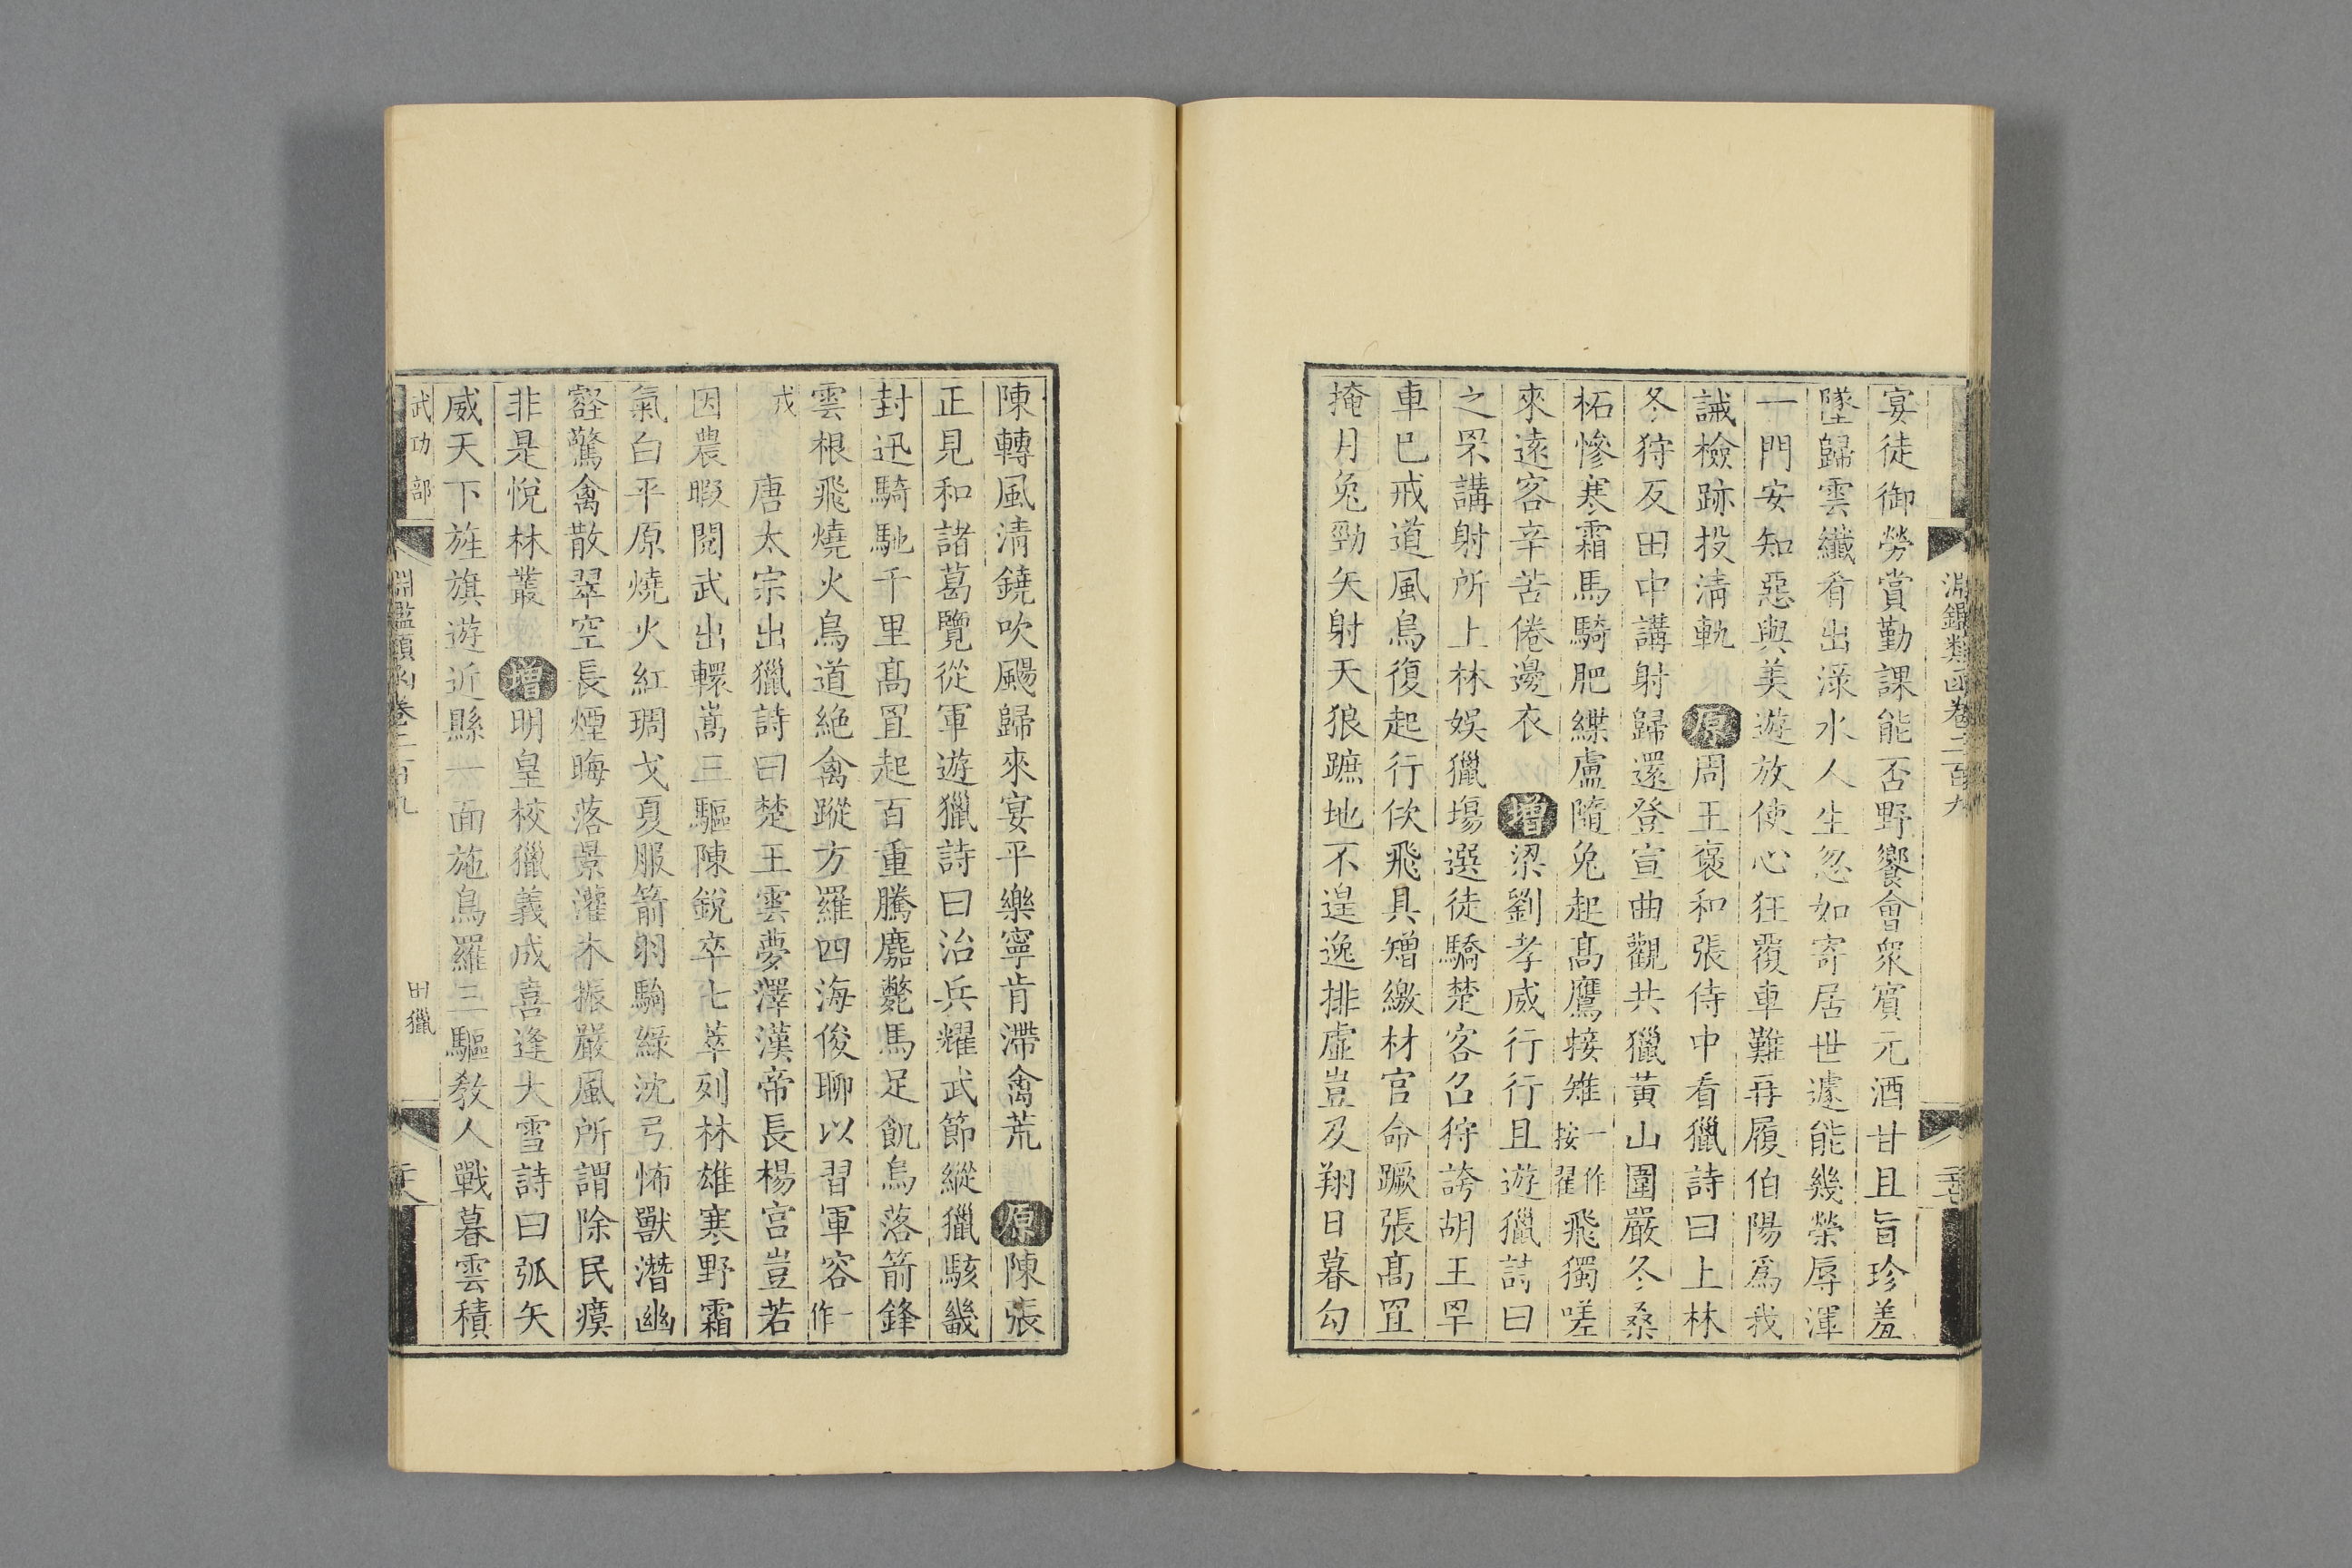 淵鑑類函卷二百九
宴徒御勞賞勤課能否野饗會衆賓元酒甘且旨珍羞
墜歸雲纖肴出淥水人生忽如寄居世遽能幾榮辱渾
一門安知惡與美遊放使心狂覆車難再履伯陽爲我
誡檢跡投清軌 原 周王褒和張侍中看獵詩曰上林
冬狩反田中講射歸還登宣曲觀共獵黃山圍嚴冬桑
柘慘寒霜馬騎肥緤盧隨兔起高鷹接雉一作按翟飛獨嗟
來遠客辛苦倦邊衣 增 梁劉孝威行行且遊獵詩曰
之罘講射所上林娛獵場選徒驕楚客召狩誇胡王罕
車已戒道風烏復起行佽飛具矰繳材官命蹶張高罝
掩月兔勁矢射天狼蹠地不遑逸排虛豈及翔日暮勾
陳轉風清鐃吹颺歸來宴平樂寧肯滯禽荒 原 陳張
正見和諸葛覽從軍遊獵詩曰治兵耀武節縱獵駭畿
封迅騎馳千里高罝起百重騰麏斃馬足飢鳥落箭鋒
雲根飛燒火鳥道絶禽蹤方羅四海俊聊以習軍容一作
戎 唐太宗出獵詩曰楚王雲夢澤漢帝長楊宮豈若
因農暇閱武出轘嵩三驅陳銳卒七萃列林雄寒野霜
氣白平原燒火紅琱戈夏服箭羽騎綠沈弓怖獸潛幽
壑驚禽散翠空長煙晦落景灌木振嚴風所謂除民瘼
非是悅林叢 增 明皇校獵義成喜逢大雪詩曰弧矢
威天下旌旗遊近縣一面施鳥羅三驅敎人戰暮雲積
武功部
淵鑑類函卷二百九
獵